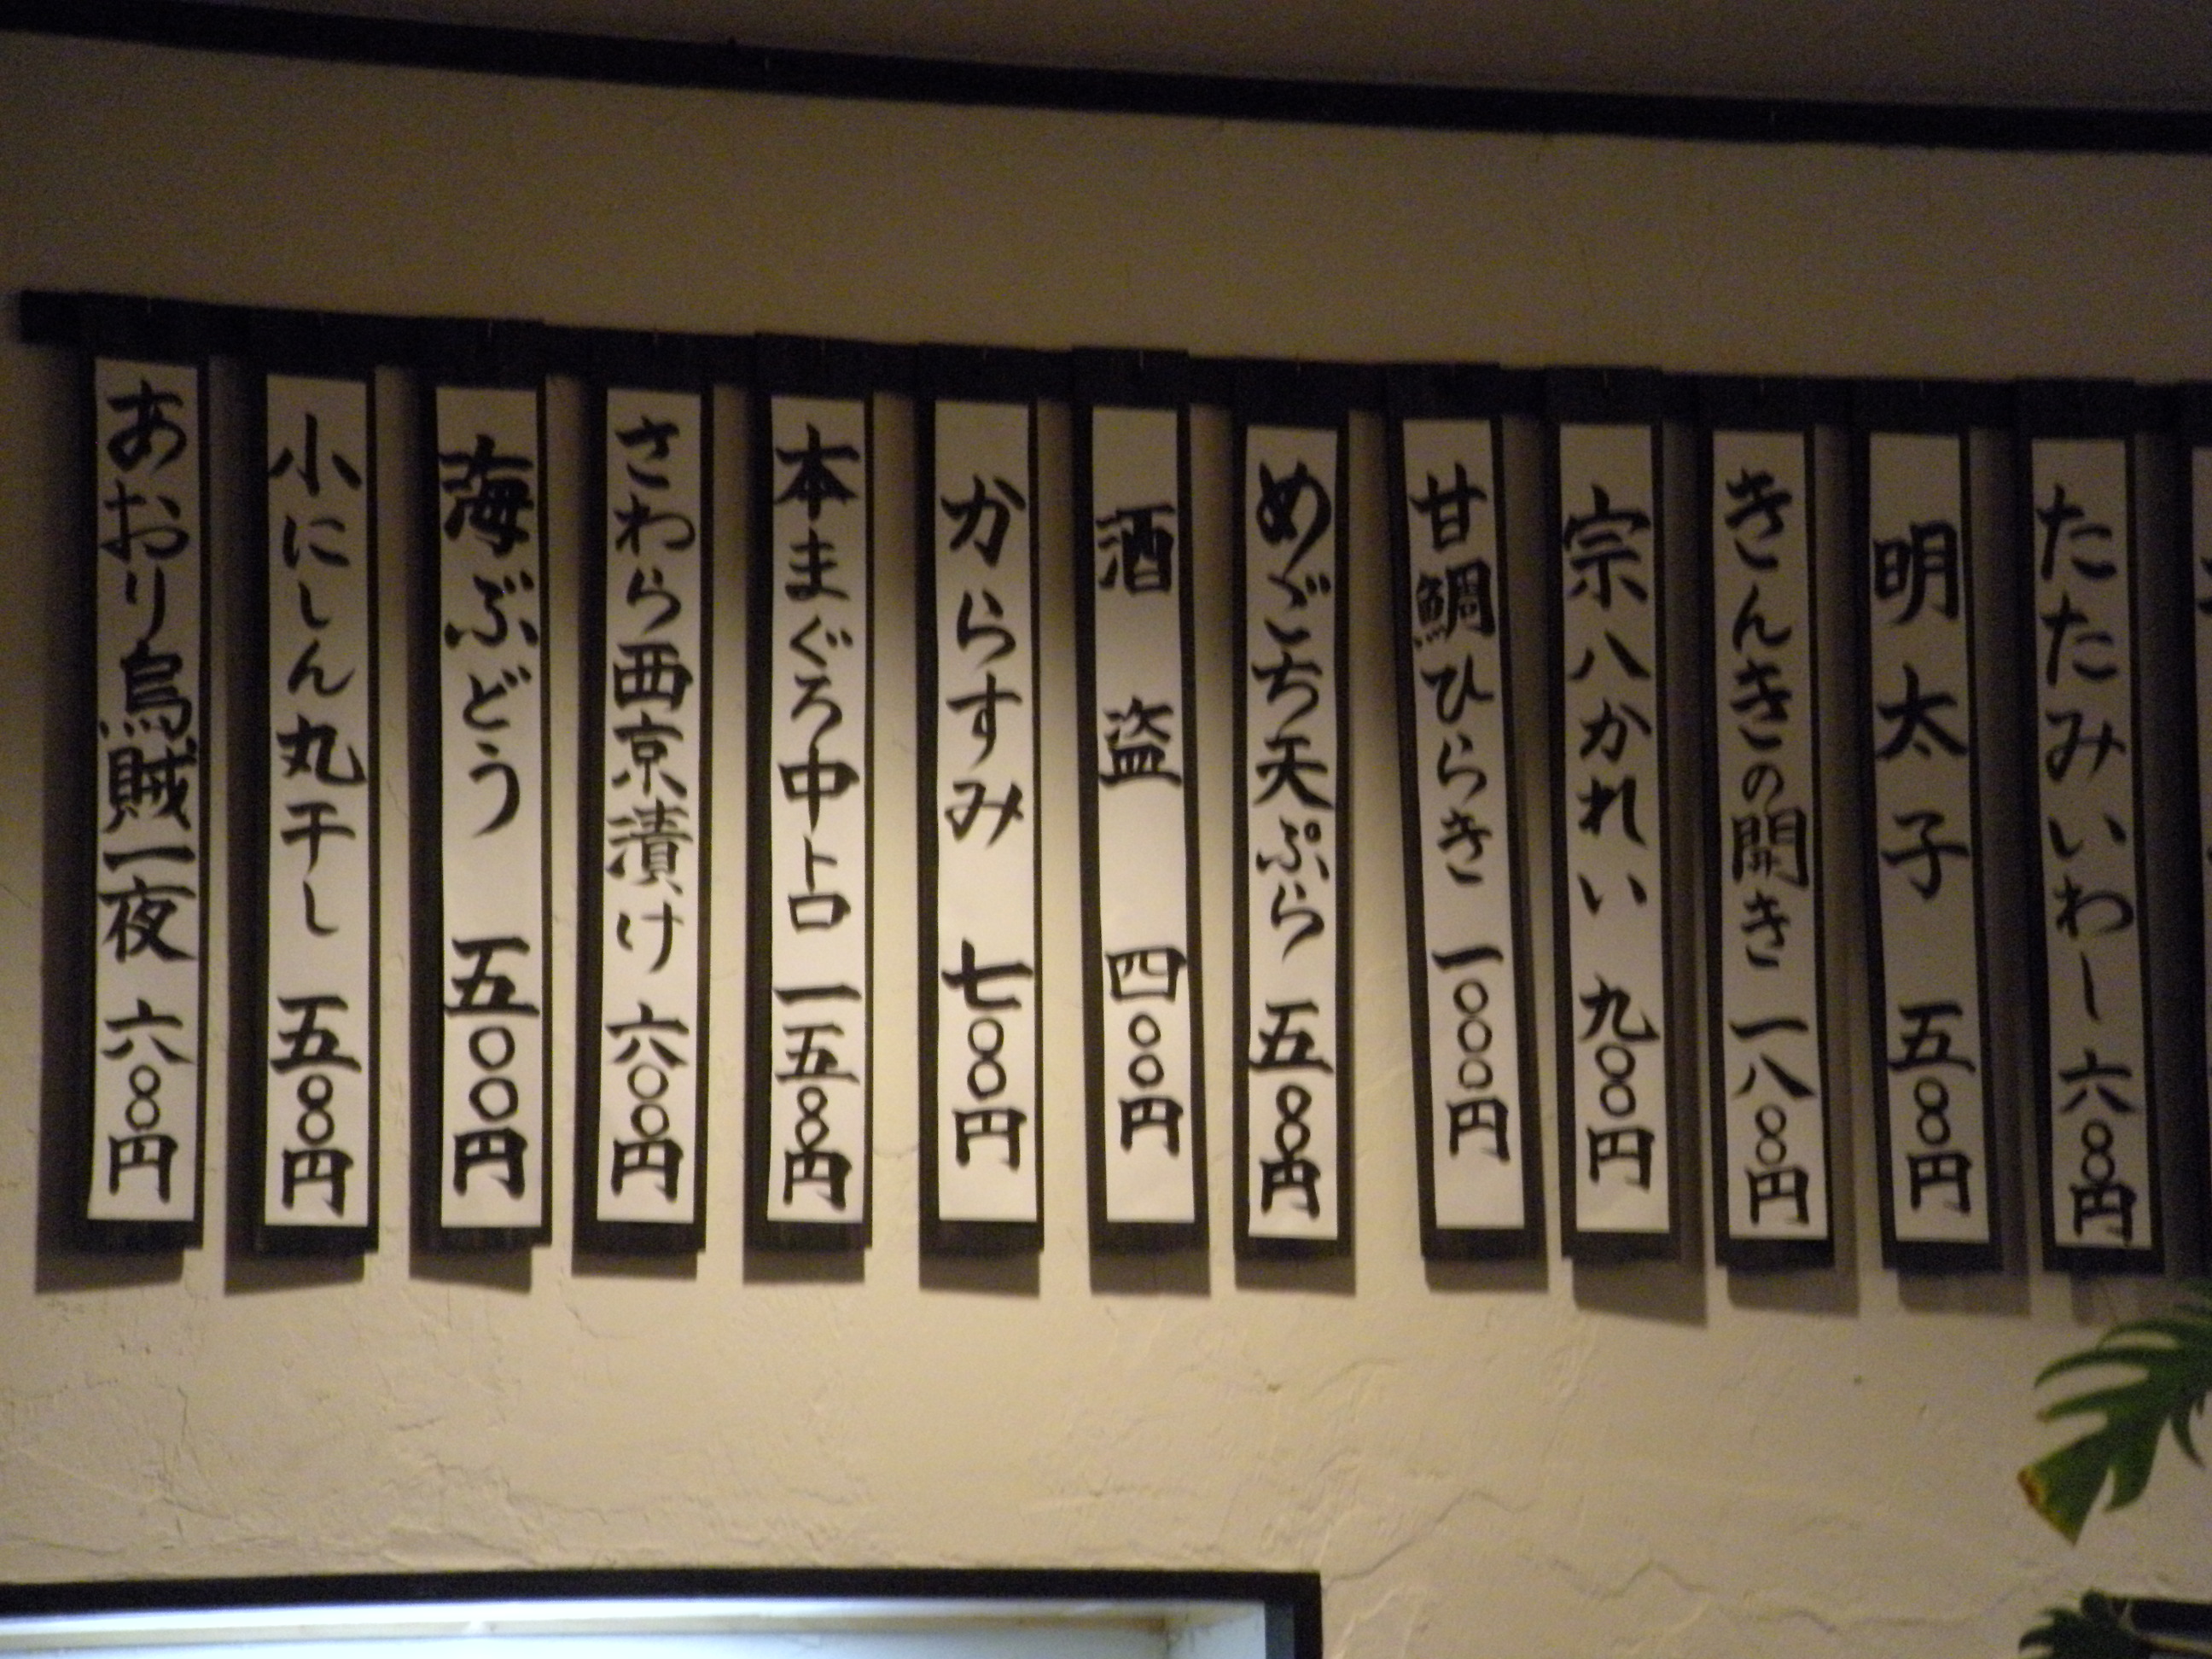 たたみいわし 六〇〇円
明太子 五〇〇円
きんきの開き 一八〇〇円
宗八かれい 九〇〇円
甘鯛ひらき 一〇〇〇円
めごち天ぷら 五〇〇円
酒盗 四〇〇円
からすみ 七〇〇円
本まぐろ中トロ 一五〇〇円
さわら西京漬け 六〇〇円
海ぶどう 五〇〇円
小にしん丸干し 五〇〇円
あおり烏賊一夜 六〇〇円